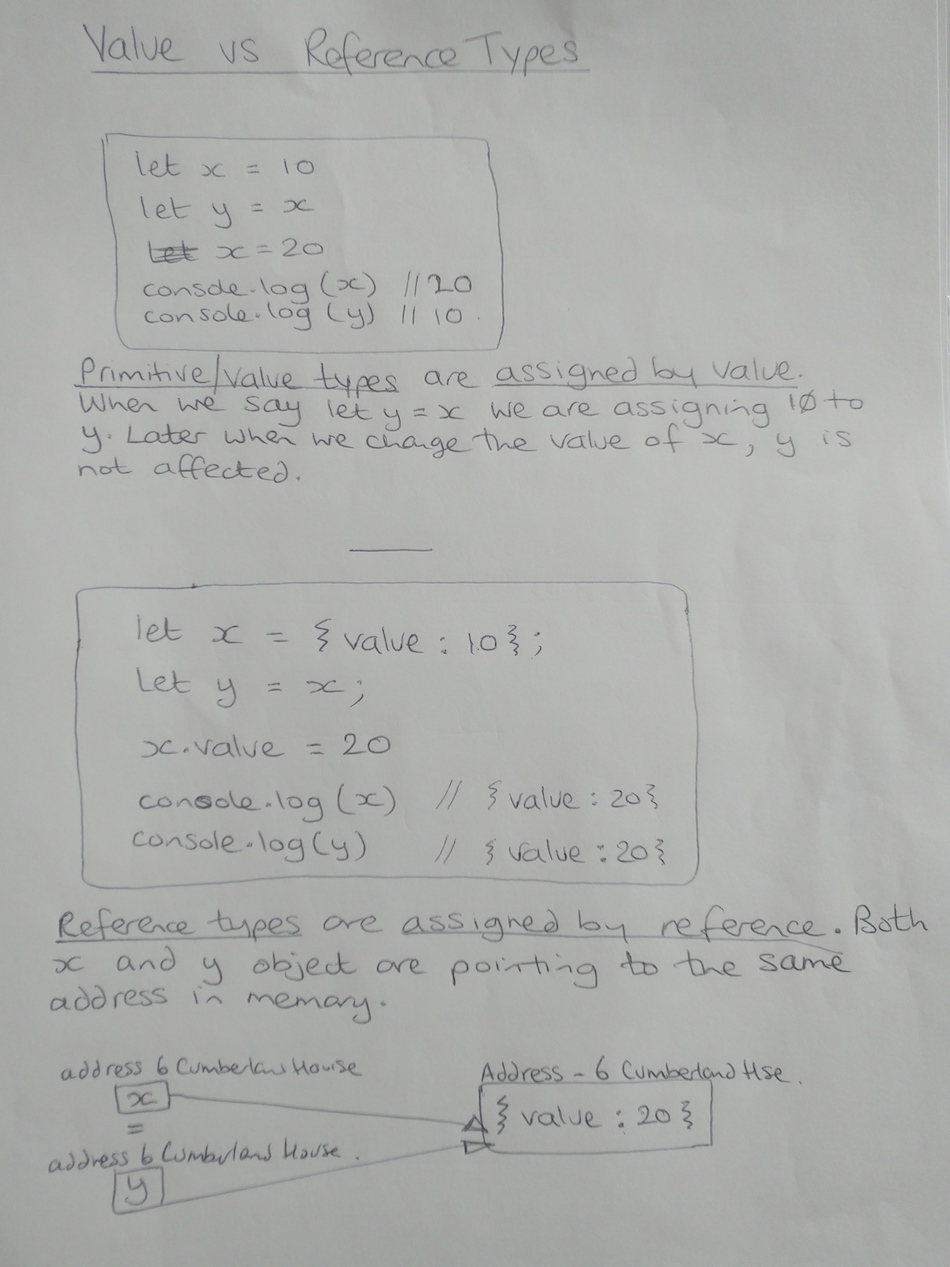 Value vs Reference Types
let x = 10
let y = x
let x = 20
console.log (x) // 20
console.log (y) // 10
Primitive/value types are assigned by value.
When we say let y = x we are assigning 10 to
y. Later when we change the value of x, y is
not affected.
let x = { value : 10 };
let y = x;
x.value = 20
console.log (x) // { value : 20}
console.log (y) // { value : 20}
Reference types are assigned by reference. Both
x and y object are pointing to the same
address in memory.
address 6 Cumberland House
x
=
address 6 Cumberland House.
y
Address - 6 Cumberland Hse.
{ value : 20 }